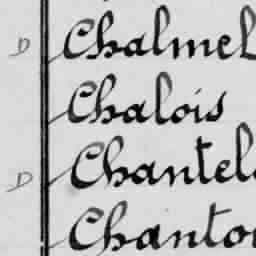 D Chalmel
Chalois
D Chantel
Chanto